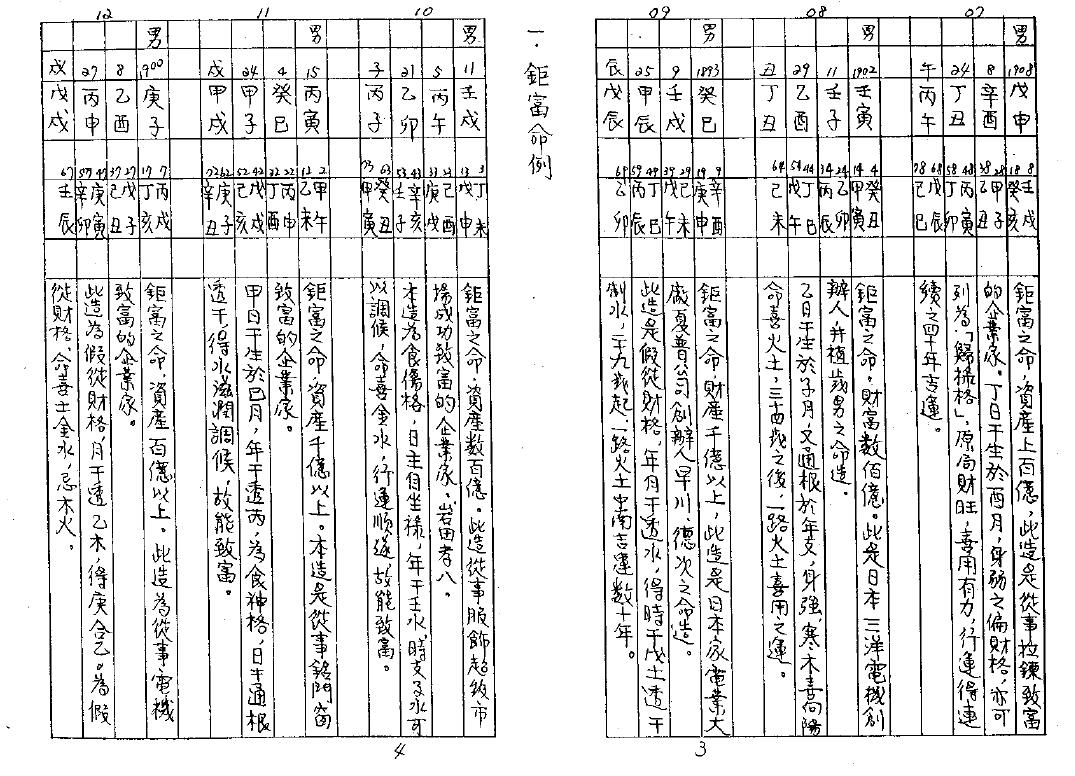 一．鉅富命例
07
男
1908 戊申
8 辛酉
24 丁丑
午 丙午
8 壬戌
18 癸亥
28 甲子
38 乙丑
48 丙寅
58 丁卯
68 戊辰
78 己巳
鉅富之命，資產上百億，此造是從事拉鍊致富
的企業家。丁日干生於酉月，身弱之偏財格，亦可
列為「歸祿格」，原局財旺，喜用有力，行運得連
續之四十年吉運。
08
男
1902 壬寅
11 壬子
29 乙酉
丑 丁丑
4 癸丑
14 甲寅
24 乙卯
34 丙辰
44 丁巳
54 戊午
64 己未
鉅富之命，財富數佰億。此是日本三洋電機創
辦人，井植歲男之命造。
乙日干生於子月，又通根於年支，身強，寒木喜向陽
命喜火土，三十四歲之後，一路火土喜用之運。
09
男
1893 癸巳
9 壬戌
25 甲辰
辰 戊辰
9 辛酉
19 庚申
29 己未
39 戊午
49 丁巳
59 丙辰
69 乙卯
鉅富之命，財產千億以上，此造是日本家電業大
廠夏普公司創辦人早川．德次之命造。
此造是假從財格，年月干透水，得時干戊土透干
制水，二十九歲起，一路火土南吉運數十年。
3
10
男
11 壬子
5 丙午
21 乙卯
子 丙子
3 丁未
13 戊申
23 己酉
33 庚戌
43 辛亥
53 壬子
63 癸丑
73 甲寅
鉅富之命，資產數百億。此造從事服飾超級市
場成功致富的企業家，岩田孝八。
本造為食傷格，日主自坐祿，年干壬水，時支子水可
以調候，命喜金水，行運順遂，故能致富。
11
男
15 丙寅
4 癸巳
24 甲子
戌 甲戌
2 甲午
12 乙未
22 丙申
32 丁酉
42 戊戌
52 己亥
62 庚子
72 辛丑
鉅富之命，資產千億以上。本造是從事鋁門窗
致富的企業家。
甲日干生於巳月，年干透丙，為食神格，日主通根
透干，得水滋潤調候，故能致富。
12
男
1900 庚子
8 乙酉
27 丙申
戌 戊戌
7 丙戌
17 丁亥
27 戊子
37 己丑
47 庚寅
57 辛卯
67 壬辰
鉅富之命，資產百億以上。此造為從事電機
致富的企業家。
此造為假從財格，月干透乙木，得庚合乙。為假
從財格，命喜土金水，忌木火。
4